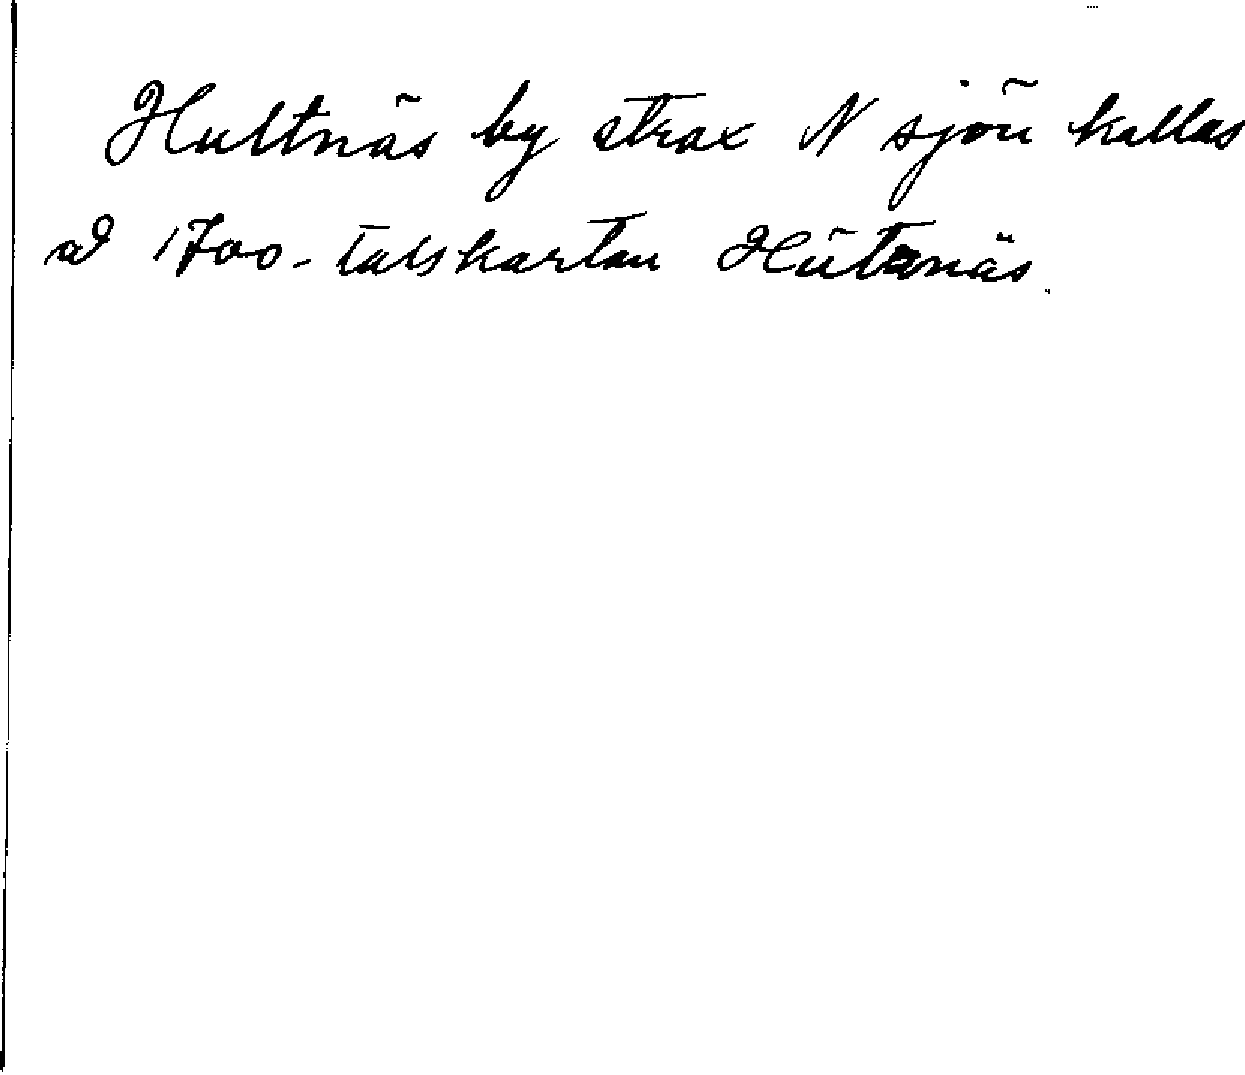 Hultnäs by strax N sjön kallas
å 1700-talskartan Hütnäs.